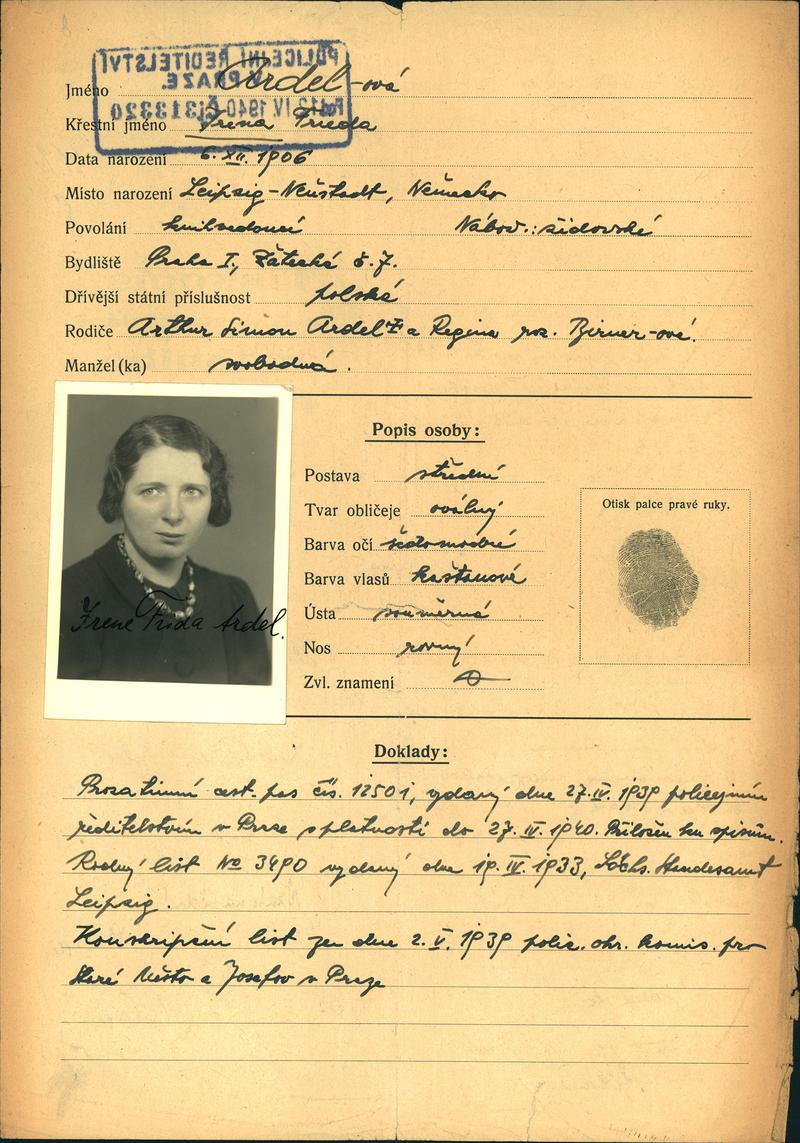 POLICEJNÍ ŘEDITELSTVÍ
V PRAZE.
12. IV. 1940 313320
Jméno Ardel-ová
Křestní jméno Irena Frieda
Data narození 6. XII. 1906
Místo narození Leipzig-Neustadt, Německo
Povolání Nábož.: židovské
Bydliště Praha I., Žatecká č. 7.
Dřívější státní příslušnost polská
Rodiče Arthur Simon Ardel a Regina roz. Birner-ová.
Manžel(ka) svobodná.
Popis osoby:
Postava střední
Tvar obličeje oválný
Barva očí šedomodré
Barva vlasů kaštanové
Ústa souměrná
Nos rovný
Zvl. znamení
Otisk palce pravé ruky.
Irene Frida Ardel.
Doklady:
Prozatimní cest. pas čís. 12501, vydaný dne 27. IV. 1939 policejním
ředitelstvím v Praze s platností do 27. IV. 1940. Přiložen ku spisům.
Rodný list No 3490 vydaný dne 19. IV. 1933, Sächs. Standesamt
Leipzig.
Konskripční list ze dne 2. V. 1939 polic. ohr. komis. pro
Staré Město a Josefov v Praze